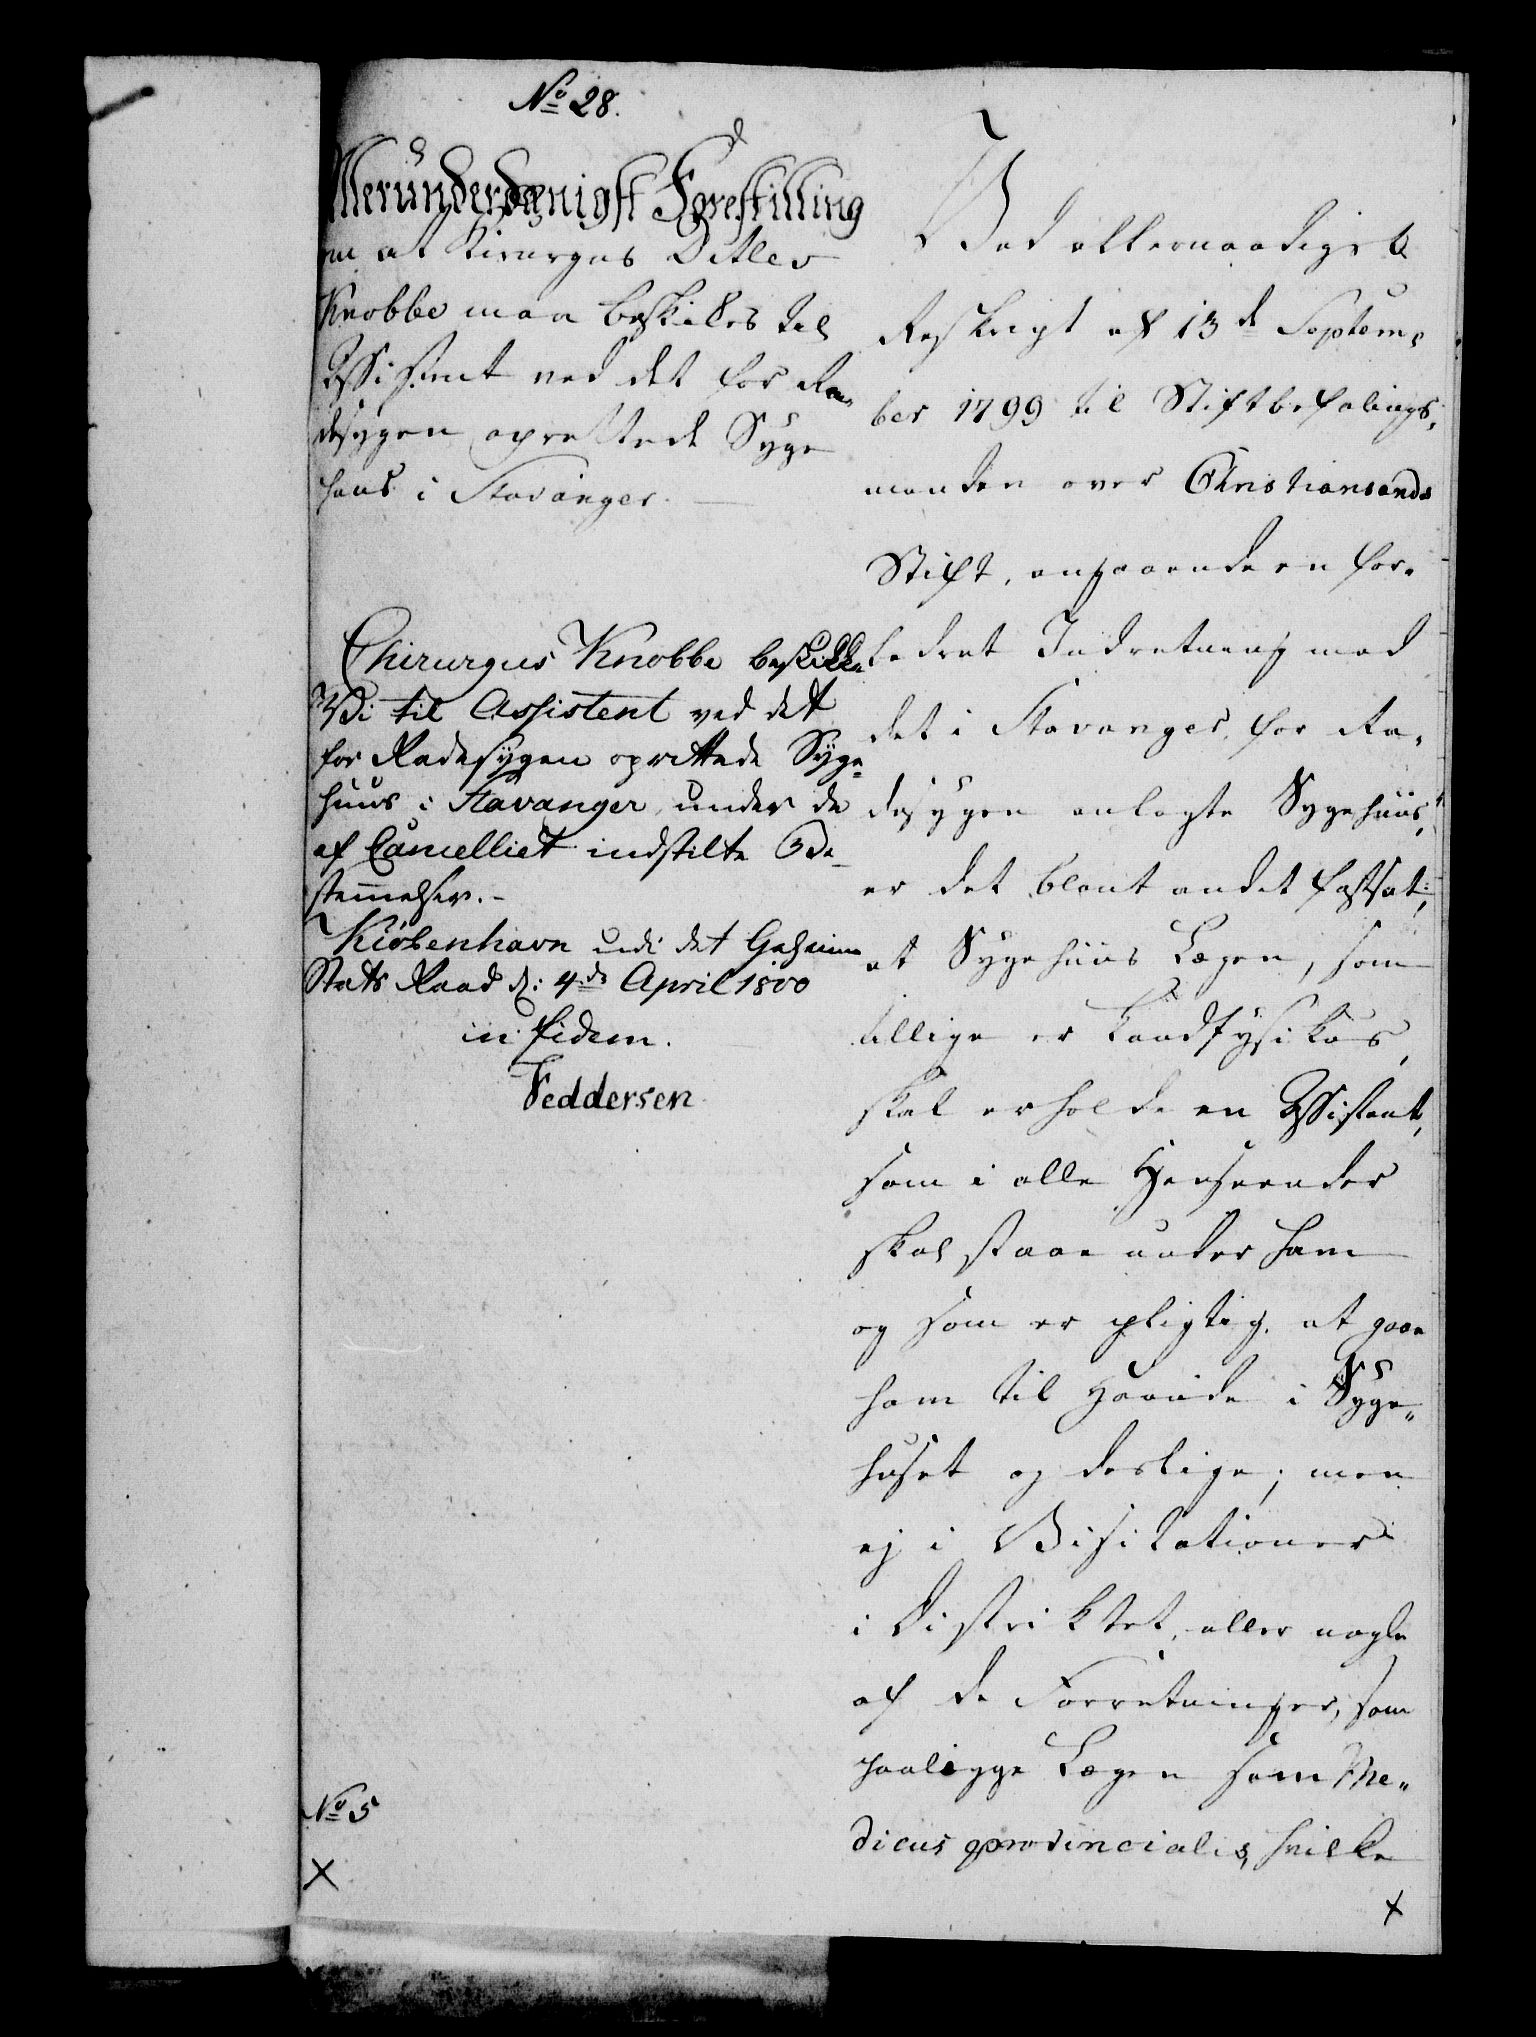 No 28.
Allerunderdanigst Forestilling
om at Kirurgus Ditlev
Knobbe maa beskikkes til
Assistent ved det for Ra-
desygen oprettede Syge
huus i Stavanger.
Chirurgus Knobbe beskikke
Vi til Assistent ved det
for Radesygen oprettede Syge-
huus i Stavanger, under de
af Cancelliet indstilte Be-
stemmelser.-
Kiöbenhavn udi det Geheime
Stats Raad d: 4de April 1800
in Fidem.
Feddersen
No 5
Ved allernaadigste
Reskript af 13de Septem-
ber 1799 til Stiftbefalings-
manden over Christiansands
Stift, angaaende en for-
bedret Indretning med
det i Stavanger, for Ra-
desygen anlagte Sygehuus,
er det blant andet fastsat,
at Sygehuus Lægen, som
tillige er Landfysikus,
skal erholde en Assistent,
som i alle Henseender
skal staae under ham
og som er pligtig, at gaae
ham til Haande i Syge-
huset og deslige; men
ej i Visitationer
i Distriktet, eller nogle
af de Forretninger, som
paaligge Lægen som Me-
dicus provincialis, hvilke